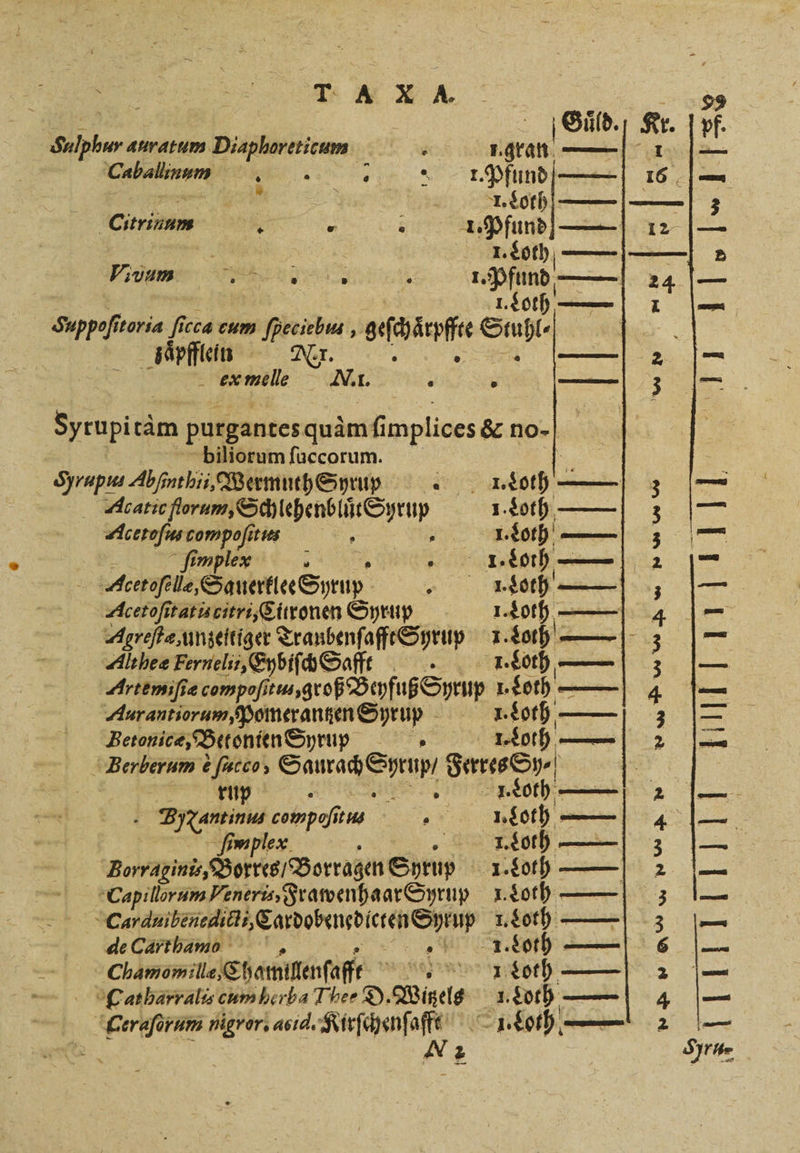 TAXA.
99
Guld. Kr. pf.
Sulphur auratum Diaphoreticum . 1.gran — 1 —
Caballinum . . . . 1.Pfund — 16 —
1.Loth — — 3
Citrinum . . . 1.Pfund — 12 —
1.Loth — — 2
Vivum . . . . 1.Pfund — 24 —
1.Loth — 1 —
Suppositoria sicca cum speciebus, geschärpffte Stuhl-
zäpfflein No. 1. . . . — 2 —
ex melle N.1. . . — 3 —
Syrupi tàm purgantes quàm simplices & no-
biliorum succorum.
Syrupus Absinthii, Wermuth Syrup . 1.Loth — 3 —
Acatic florum, Schlehenblüt Syrup 1.Loth — 3 —
Acetosus compositus . . 1.Loth — 3 —
simplex . . . 1.Loth — 2 —
Acetosellæ, Sauerflee Syrup . 1.Loth — 3 —
Acetositatis citri, Citronen Syrup 1.Loth — 4 —
Agrestæ, unzeitiger Traubensafft Syrup 1.Loth — 3 —
Altheæ Fernelii, Eybisch Safft . 1.Loth — 3 —
Artemisiæ compositus, groß Beyfuß Syrup 1.Loth — 4 —
Aurantiorum, Pomerantzen Syrup 1.Loth — 3 —
Betonicæ, Betonien Syrup . 1.Loth — 2 —
Berberum è succo, Saurach Syrup/ Ferres Sy-
rup . . . 1.Loth — 2 —
. Byzantinus compositus . 1.Loth — 4 —
simplex . . 1.Loth — 3 —
Borraginis, Borres/Borragen Syrup 1.Loth — 2 —
Capillorum Veneris, Frawenhaar Syrup 1.Loth — 3 —
Carduibenedicti, Cardobenedicten Syrup 1.Loth — 3 —
de Carthamo . . . 1.Loth — 6 —
Chamomillæ, Chamillensafft . 1 Loth — 2 —
Catharralis cum herba Thee D. Witzels 1.Loth — 4 —
Cerasorum nigror. acid. Kirschensafft 1.Loth — 2 —
N 2
Syru-